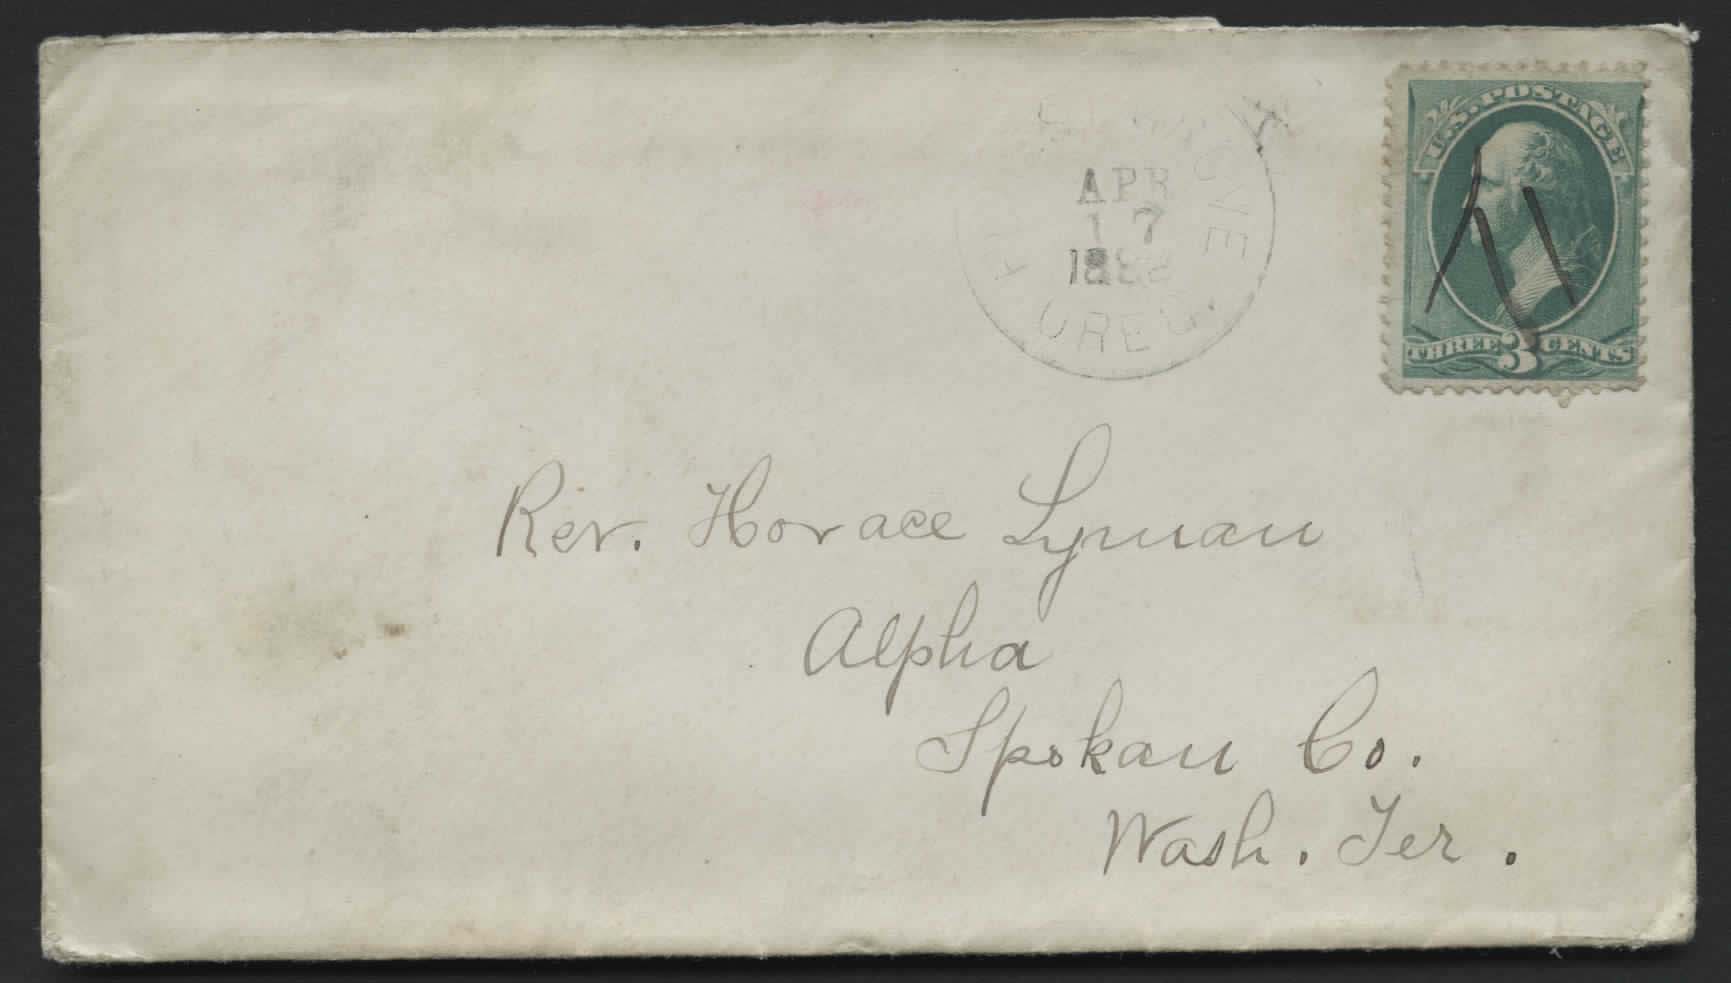 APR
17
OREG.
U.S. POSTAGE
THREE 3 CENTS
Rev. Horace Lyman
Alpha
Spokan Co.
Wash. Ter.